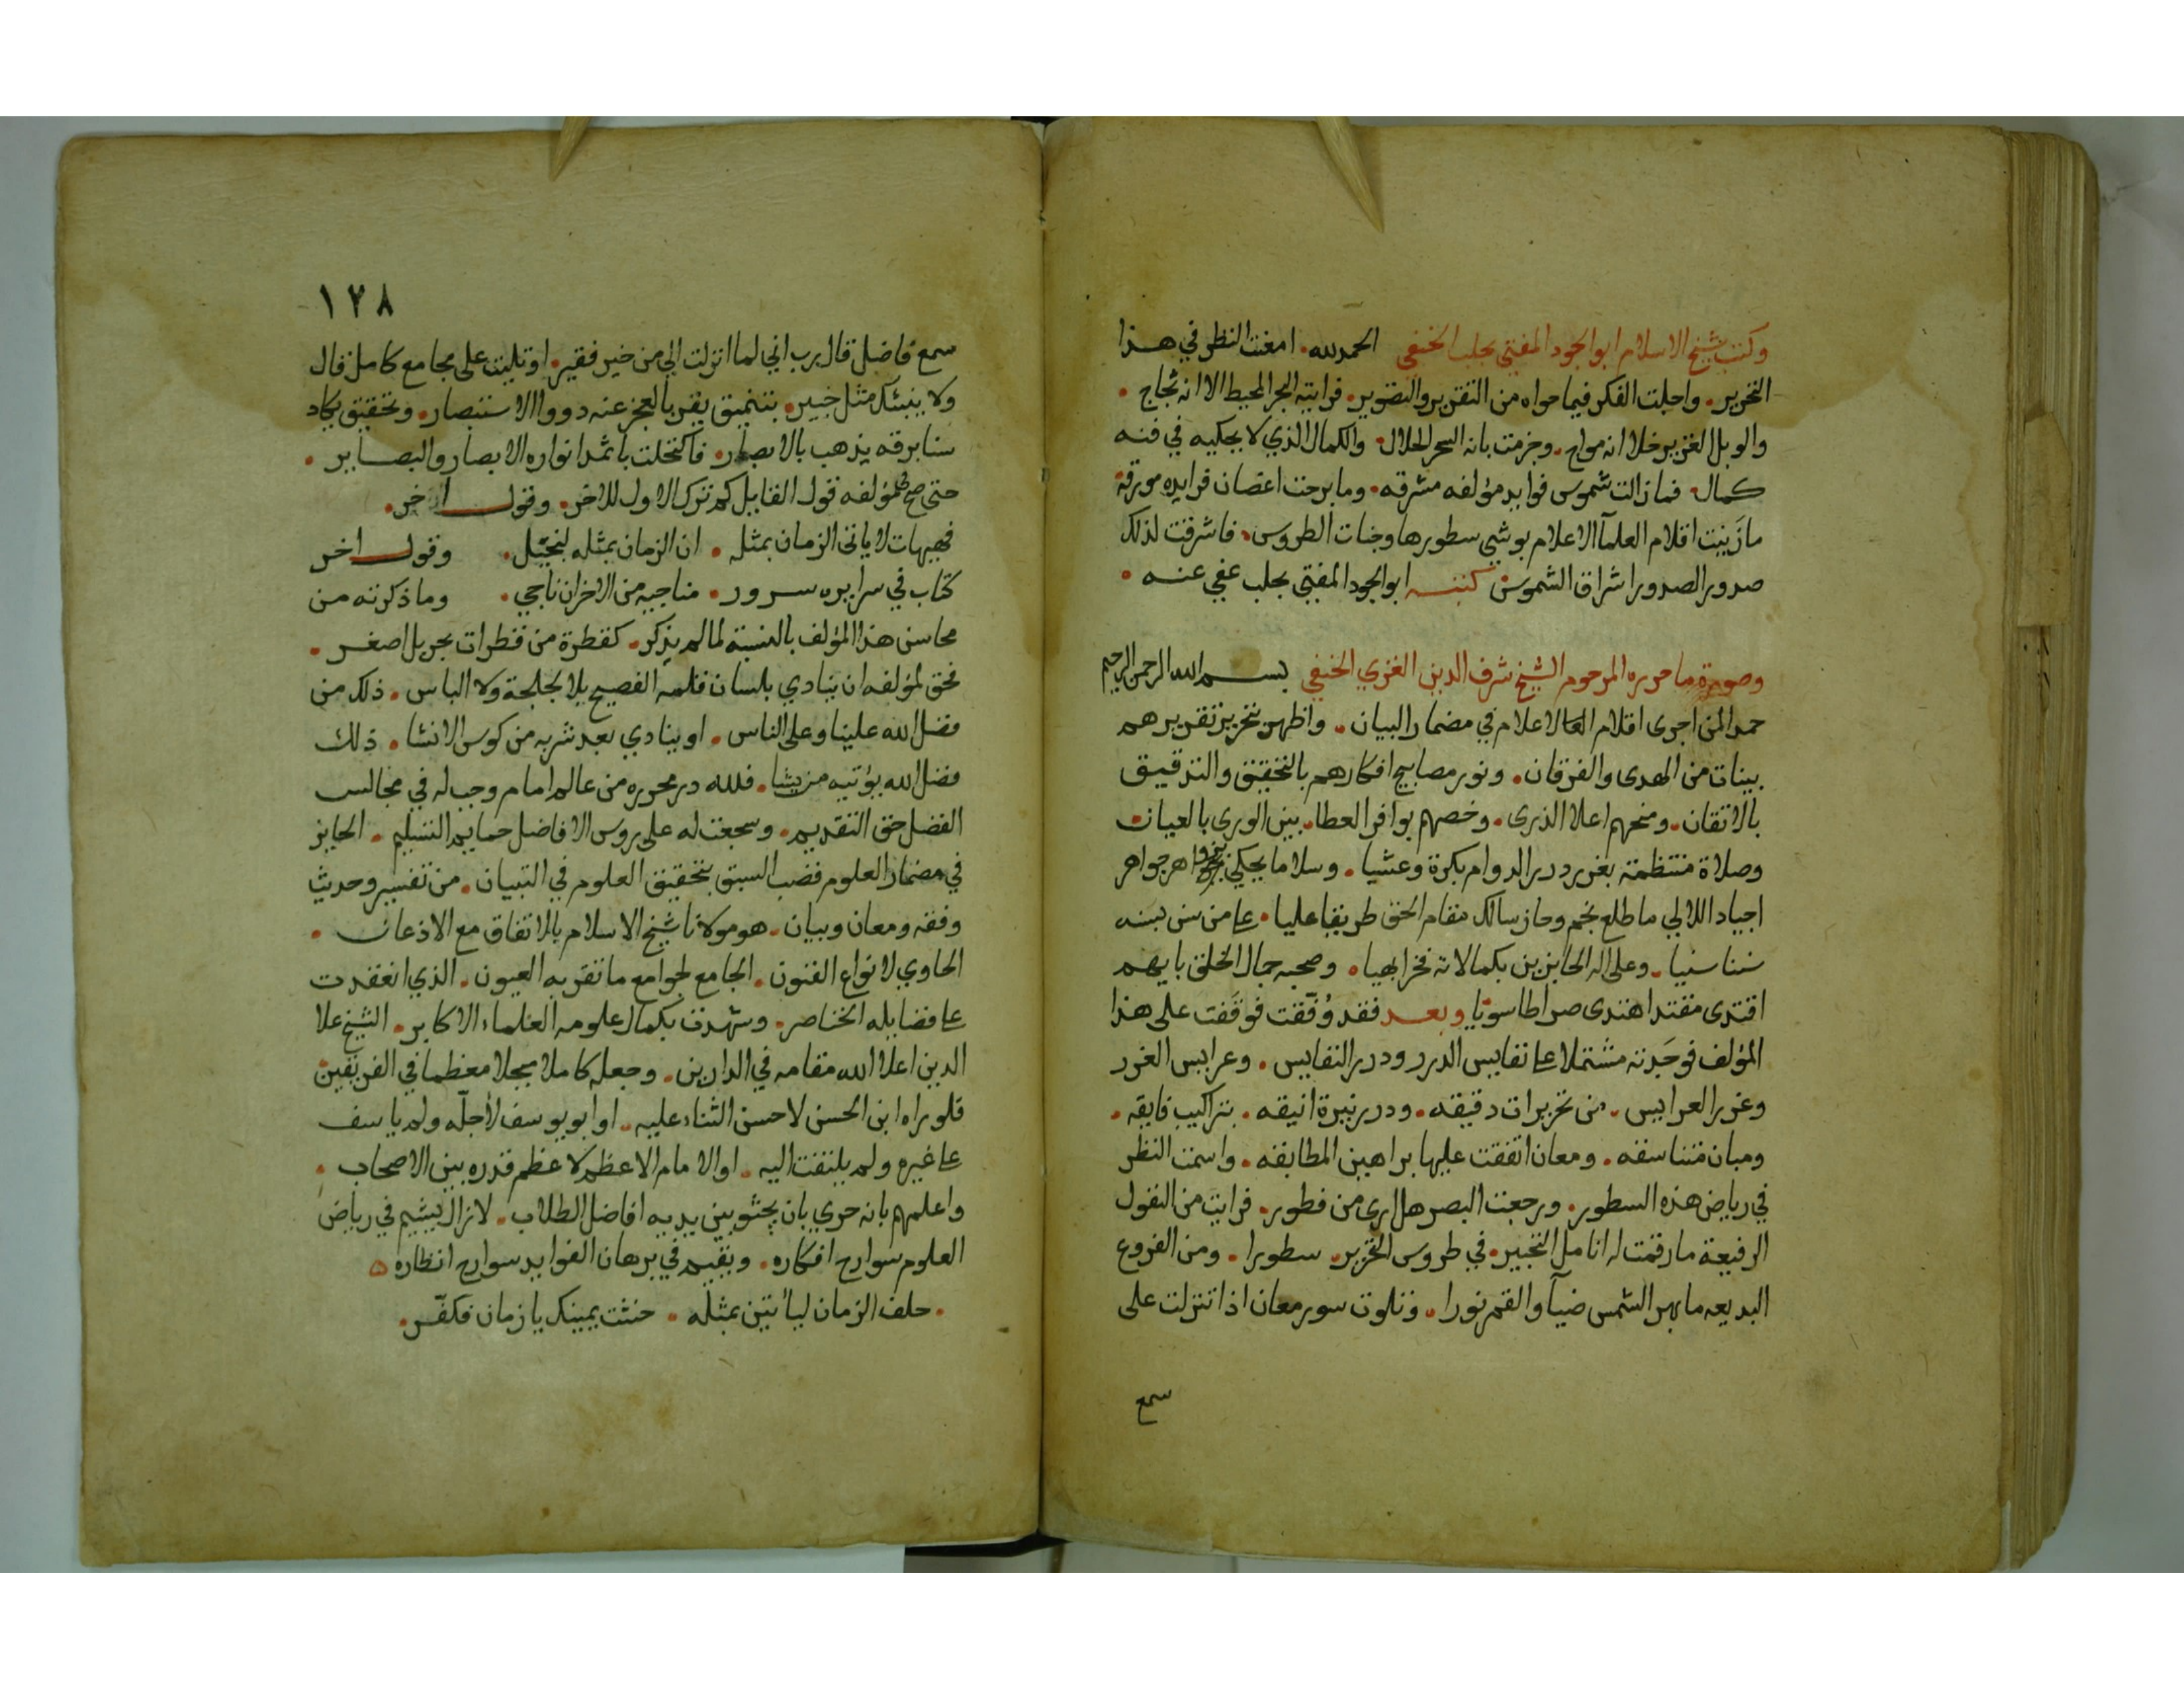 وكتب شيخ الاسلام ابو الجود المفتي بحلب الحنفي الحمد لله. امعنت النظر في هذا
التحرير. واجلت الفكر فيما حواه من التقرير والتصوير. فرايته البحر المحيط الا انه ثجاج.
والوبل الغزير خلا انه مواج. وجزمت بانه السحر الحلال. والكمال الذي لا يحكيه في فنه
كمال. فما زالت شموس فوايد مؤلفه مشرقه. وما برحت اغصان فرايده مورقة
ما زينت اقلام العلمآ الاعلام بوشي سطورها وجنات الطروس. فاشرقت لذلك
صدور الصدور اشراق الشموس كتبه ابو الجود المفتي بحلب عفي عنه.
وصورة ما حرره المرحوم الشيخ شرف الدين الغزي الحنفي بسم الله الرحمن الرحيم
حمد المن اجرى اقلام الاعلام في مضمار البيان. واظهر بتحرير تقريرهم
بينات من الهدى والفرقان. ونور مصابيح افكارهم بالتحقيق والتدقيق
بالاتقان. ومنحهم اعلا الذرى. وخصهم بوافر العطا. بين الورى بالعيان.
وصلاة منتظمة بغرير درر الدوام بكرة وعشيا. وسلاما يحكي جواهر
اجياد اللالي ما طلع نجم وحاز سالك مقام الحق طريقا عليا. على من سن بسنه
سننا سنيا. وعلى اله الحايزين بكمالاته فخرا بهيا. وصحبه جمال الخلق بايهم
اقتدى مقتد اهتدى صراطا سويا وبعد فقد وُفّقت فوقَفت على هذا
المؤلف فوجَدته مشتملا على نفايس الدرر ودرر النفايس. وعرايس الغرر
وغرر العرايس. من تحريرات دقيقه. ودرر نيرة انيقه. بتراكيب فايقه.
ومبان متناسقه. ومعان اتفقت عليها براهين المطابقه. واسمت النظر
في رياض هذه السطور. ورجعت البصر هل ارى من فطور. فرايت من النقول
الرفيعة ما رقمت له انامل التحبير. في طروس التحرير. سطورا. ومن الفروع
البديعه ما بهر الشمس ضيآ والقمر نورا. وتلوت سور معان اذا تنزلت على
سمع
١٢٨
سمع فاضل قال رب اني لما انزلت الي من خير فقير. او تليت على مجامع كامل قال
ولا ينبئك مثل خبير. بتنميق يقر بالعجز عنه ذووا الاستبصار. وتحقيق يكاد
سنا برقه يذهب بالابصار. فاكتحلت باثمد انواره الابصار والبصاير.
حتى صح لمؤلفه قول القايل كم ترك الاول للاخر. وقول اخر.
فهيهات لا ياتى الزمان بمثله. ان الزمان بمثله لبخيل. وقول اخر
كتاب في سرايره سرور. مناجيه من الاحزان ناجي. وما ذكرته من
محاسن هذا المؤلف بالنسبة لما لم يذكر. كقطرة من قطرات بحر بل اصغر.
فحق لمؤلفه ان ينادي بلسان قلمه الفصيح بلا لجلجة ولا الباس. ذلك من
فضل الله علينا وعلى الناس. او ينادي بعد شربه من كوس الانشا. ذلك
فضل الله يؤتيه من يشا. فلله در محرره من عالم امام وجب له في مجالس
الفضل حق التقديم. وسجعت له على روس الافاضل حمايم التسليم. الحايز
في مضمار العلوم قصب السبق بتحقيق العلوم في التبيان. من تفسير وحديث
وفقه ومعان وبيان. هو مولانا شيخ الاسلام بالاتفاق مع الاذعان.
الحاوي لانواع الفنون. الجامع لجوامع ما تقر به العيون. الذي انعقدت
على فضايله الخناصر. وشهدت بكمال علومه العلماء الاكابر. الشيخ علا
الدين اعلا الله مقامه في الدارين. وجعله كاملا مبجلا معظما في الفريقين
فلو راه ابن الحسن لاحسن الثناء عليه. او ابو يوسف لأجلّه ولم ياسف
على غيره ولم يلتفت اليه. او الامام الاعظم لاعظم قدره بين الاصحاب.
واعلمهم بانه حري بان يجثو بين يديه افاضل الطلاب. لا زال يشيم في رياض
العلوم سوارح افكاره. ويقيم في برهان الفوايد سوارح انظاره ه
. حلف الزمان ليأتين بمثله. حنثت يمينك يا زمان فكفّر.